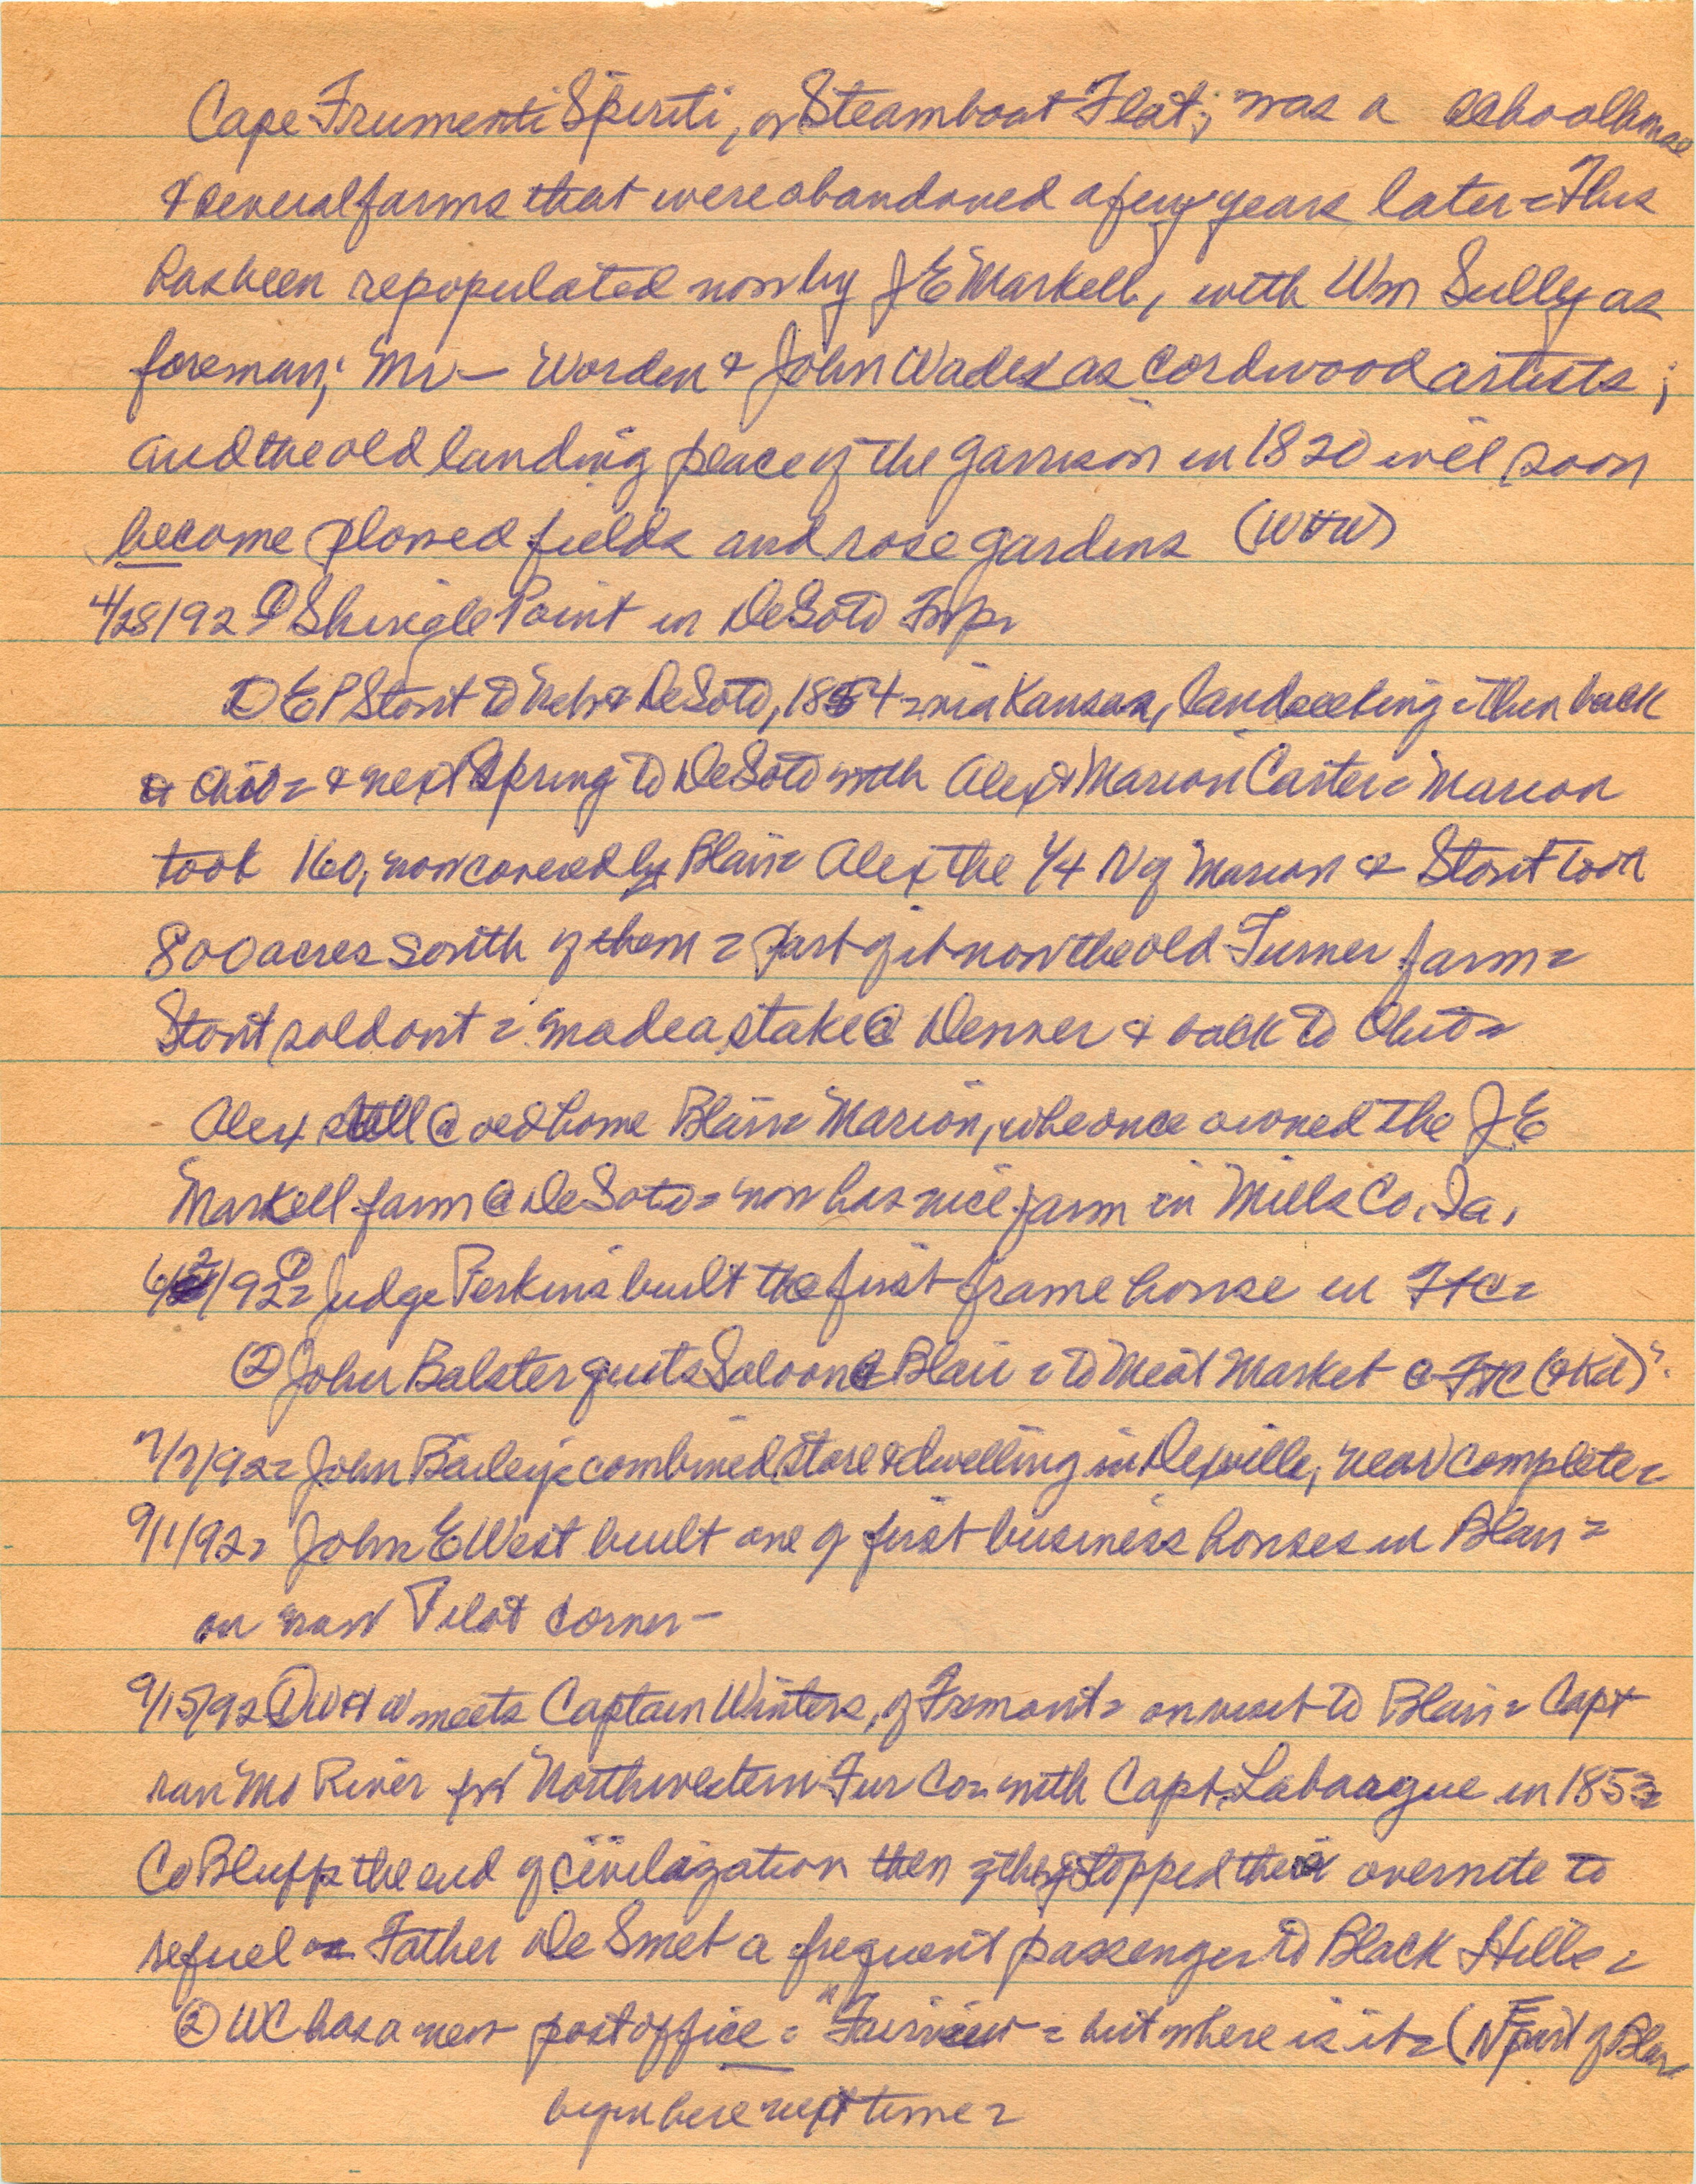 Cape Frumenti Spiriti, or Steamboat Flat; was a schoolhouse
& several farms that were abandoned a few years later = This
has been repopulated now by J E Markell, with Wm Sully as
foreman; Mr — Worden & John Wades as cordwood artists;
and the old landing place of the garrison in 1820 will soon
become plowed fields and rose gardens (WHW)
4/28/92 ① Shingle Point in DeSoto Twp.
② E P Stout to Neb & DeSoto, 1854 = via Kansas, landseeking = then back
to Ohio = & next Spring to DeSoto with Alex & Marion Carter = Marion
took 160, now covered by Blair = Alex the 1/4 N of Marion & Stout took
800 acres south of them = part of it now the old Turner farm =
Stout sold out = made a stake @ Denver & back to Ohio =
Alex still @ old home Blair = Marion, who once owned the J E
Markell farm @ DeSoto = now has nice farm in Mills Co, Ia.
6/2/92 ① = Judge Perkins built the first frame house in FtC =
② John Balster quits Saloon @ Blair = to Meat Market @ FtC (& Kd)
7/7/92 = John Bailey's combined store & dwelling in Dexville, near complete =
9/1/92 = John E West built one of first business houses in Blair =
on now Pilot corner —
9/15/92 ① WHW meets Captain Winters, of Fremont = on visit to Blair = Capt
ran Mo River for Northwestern Fur Co = with Capt. Labaugue in 1853 =
Co Bluffs the end of civilization then & they stopped there overnite to
refuel = Father De Smet a frequent passenger to Black Hills =
② WC has a new post office = "Fairview = but where is it = (N part of Blair
begin here next time =